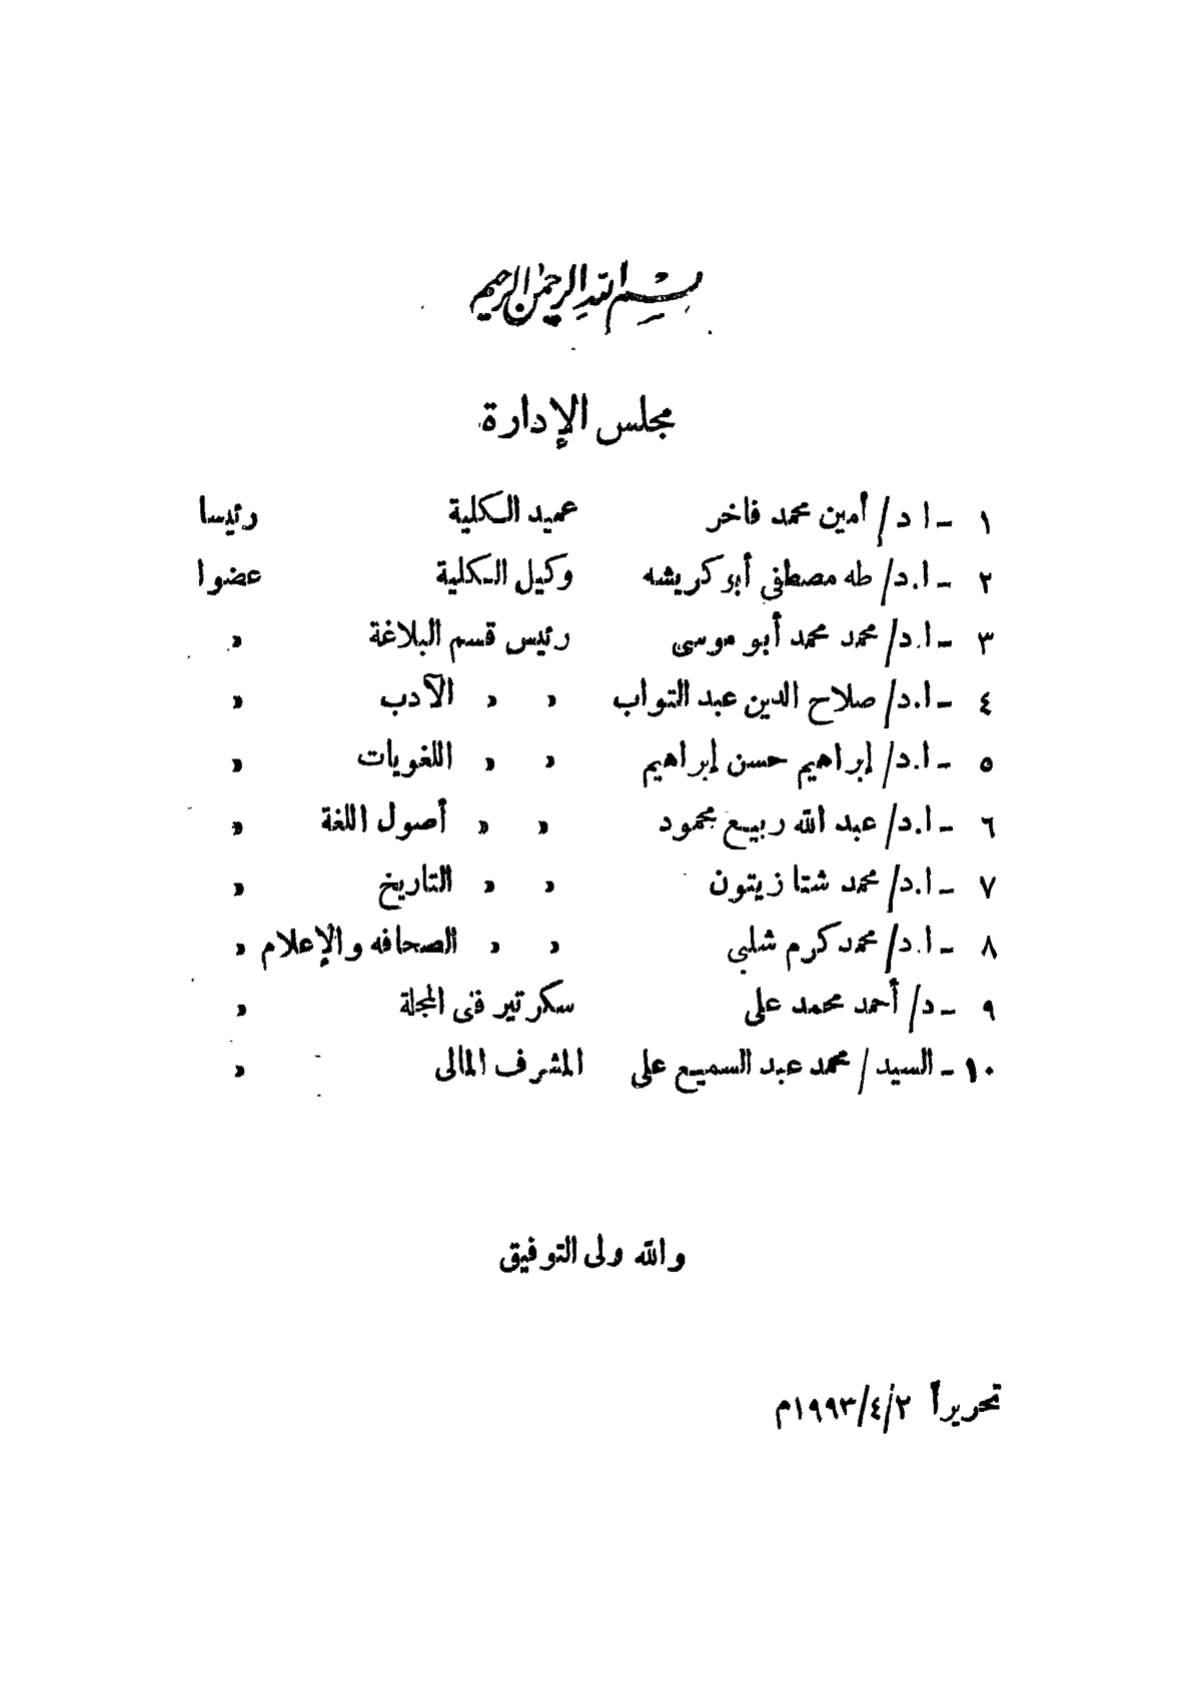 بسم الله الرحمن الرحيم
مجلس الإدارة
١ - ا د/ أمين محمد فاخر عميد الكلية رئيسا
٢ - ا.د/ طه مصطفى أبو كريشه وكيل الكلية عضوا
٣ - ا.د/ محمد محمد أبو موسى رئيس قسم البلاغة »
٤ - ا.د/ صلاح الدين عبد التواب » » الآدب »
٥ - ا.د/ إبراهيم حسن إبراهيم » » اللغويات »
٦ - ا.د/ عبد الله ربيع محمود » » أصول اللغة »
٧ - ا.د/ محمد شتا زيتون » » التاريخ »
٨ - ا.د/ محمد كرم شلبى » » الصحافه والإعلام »
٩ - د/ أحمد محمد على سكرتير فنى المجلة »
١٠ - السيد / محمد عبد السميع على المشرف المالى »
والله ولى التوفيق
تحريرا ١٩٩٣/٤/٢م